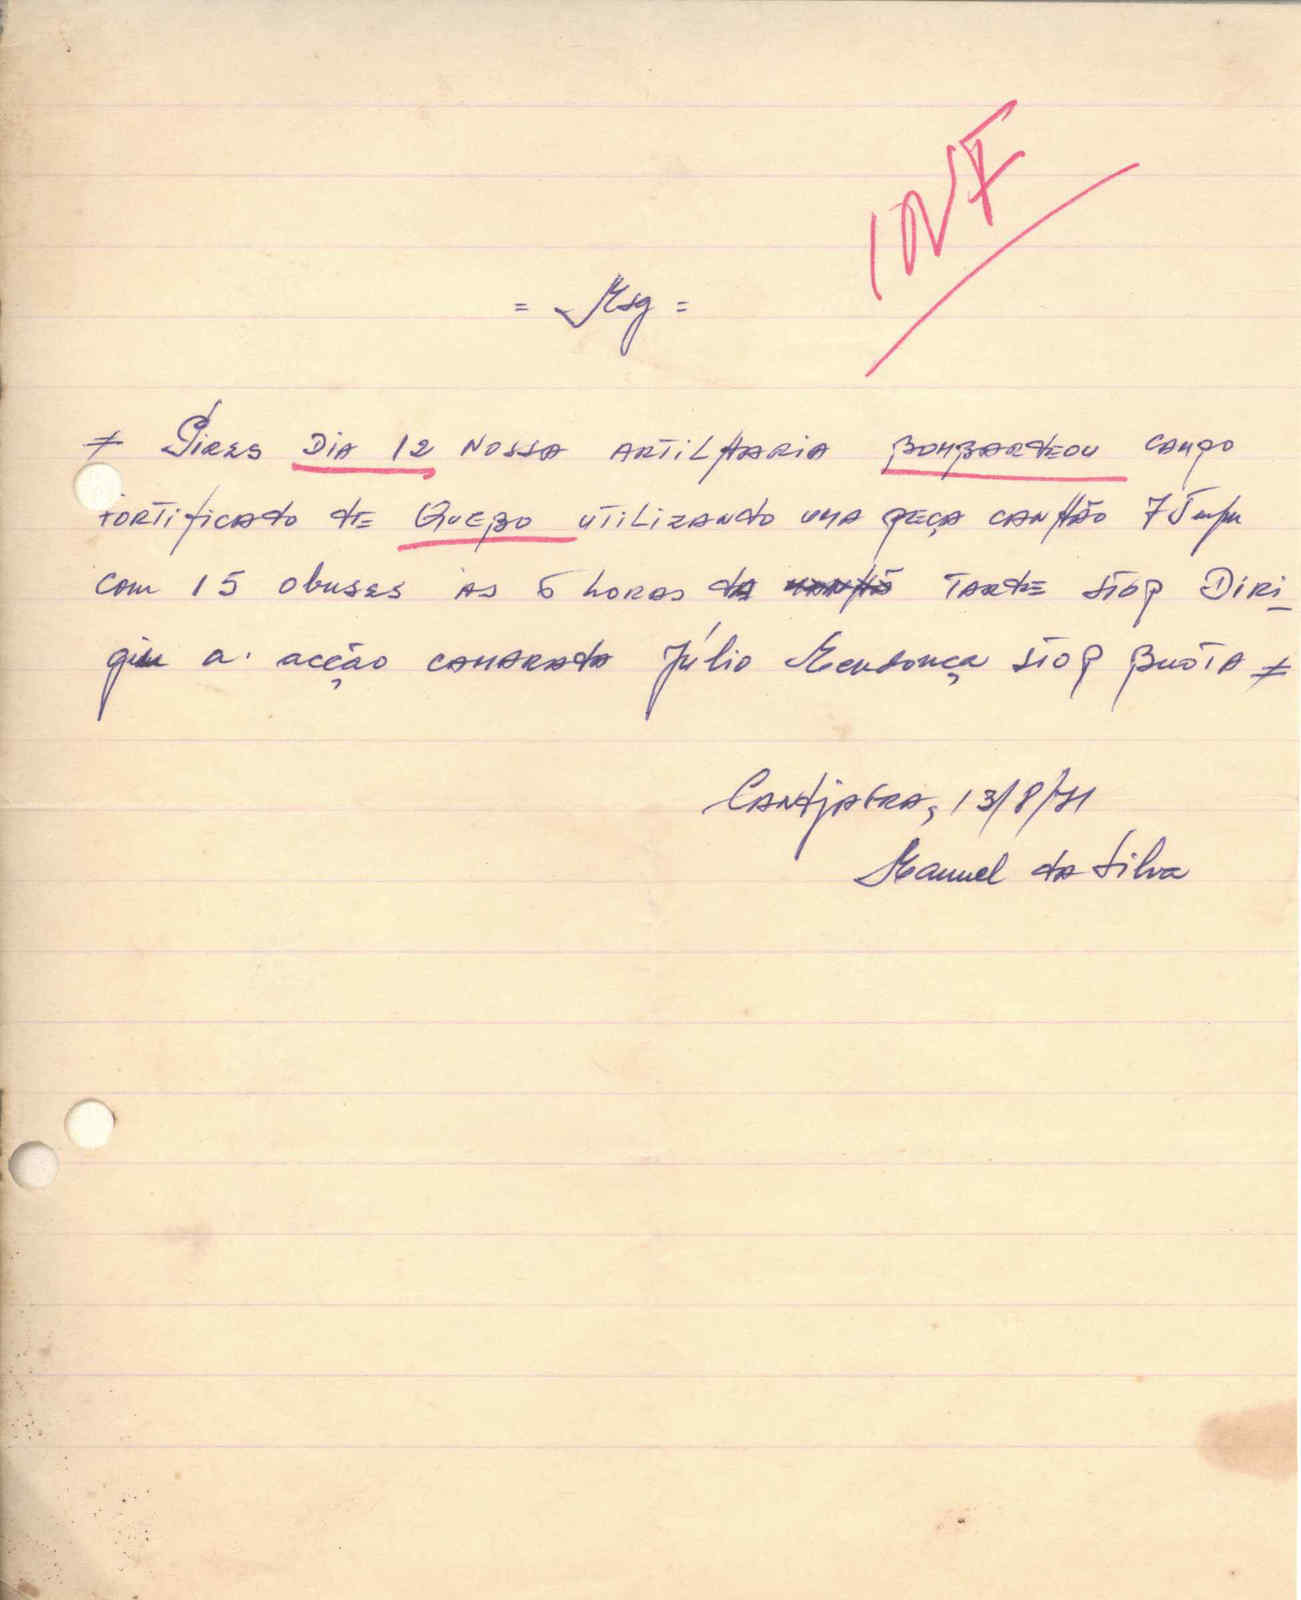 INF
= Msg =
≠ Pires DIA 12 NOSSA ARTILHARIA BOMBARDEOU campo
FORTIFICADO DE QUEBO UTILIZANDO UMA PEÇA CANHÃO 75 m/m
com 15 obuses AS 6 horas da manhã TARDE STOP DIRI-
giu a acção CAMARADA Júlio Mendonça STOP BUOTA ≠
CANDJAFRA, 13/8/71
Manuel da Silva